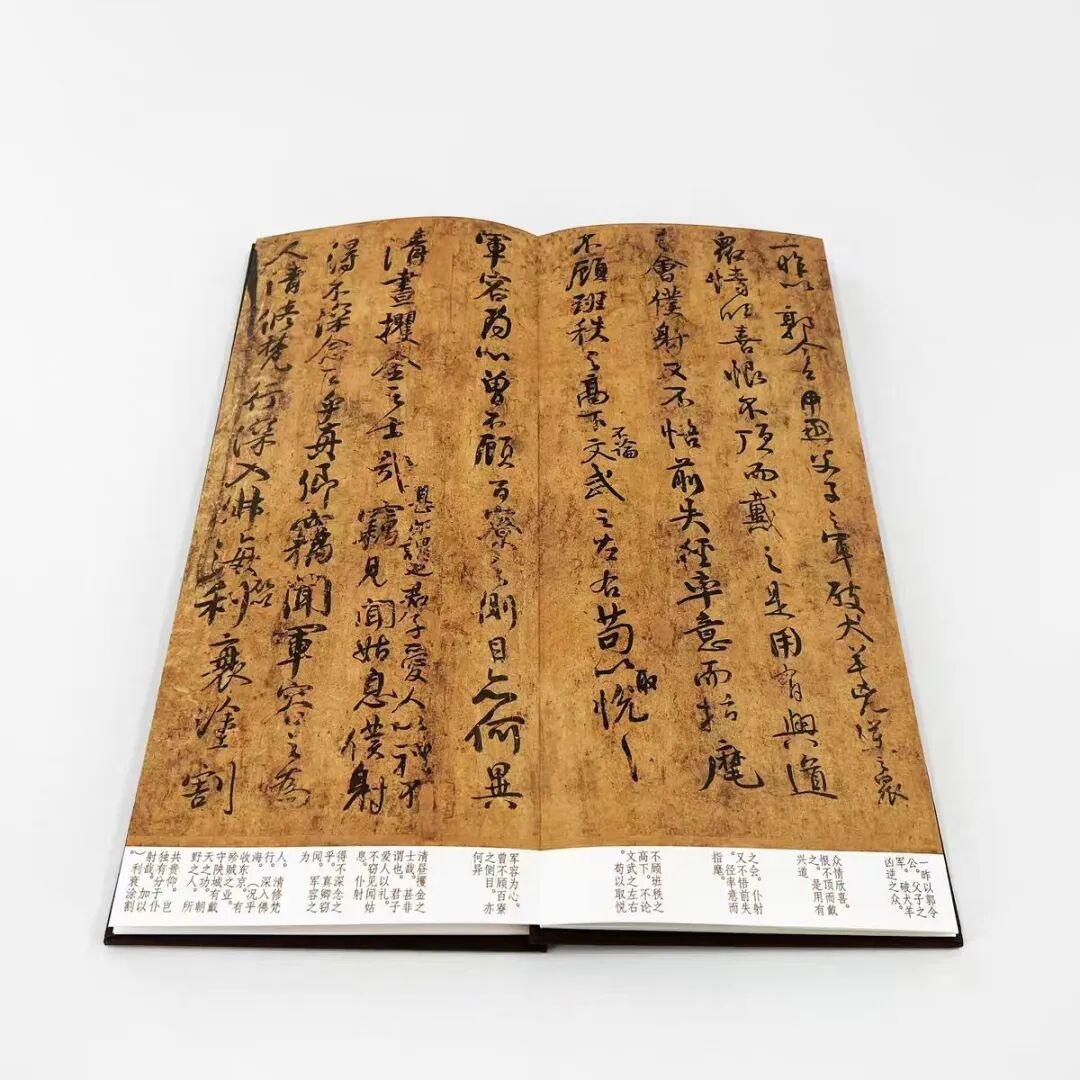 一昨以郭令公以父子之軍破犬羊兇逆之衆
衆情欣喜恨不頂而戴之是用有興道
之會僕射又不悟前失徑率意而指麾
不顧班秩之高下不論文武之左右苟以取悅
軍容為心曾不顧百寮之側目亦何異
清晝攫金之士哉甚非謂也君子愛人以禮不竊見聞姑息僕射
得不深念之乎真卿竊聞軍容之為
人清修梵行深入佛海利衰塗割
一昨以郭令
公。父子之
军。破犬羊
凶逆之众。
众情欣喜。
恨不顶而戴
之。是用有
兴道
之会。仆射
又不悟前失
。径率意而
指麾。
不顾班秩之
高下。不论
文武之左右
。苟以取悦
军容为心。
曾不顾百寮
之侧目。亦
何异
清昼攫金之
士哉。甚非
谓也。君子
爱人以礼。
不窃见闻姑
息。仆射
得不深念之
乎。真卿窃
闻。军容之
为
人。清修梵
行。深入佛
海。（况乎
收东京。有
殄贼之业。
守陕城有戴
天之功。朝
野之人。所
共贵仰。岂
独有分于仆
射哉。加以
）利衰涂割